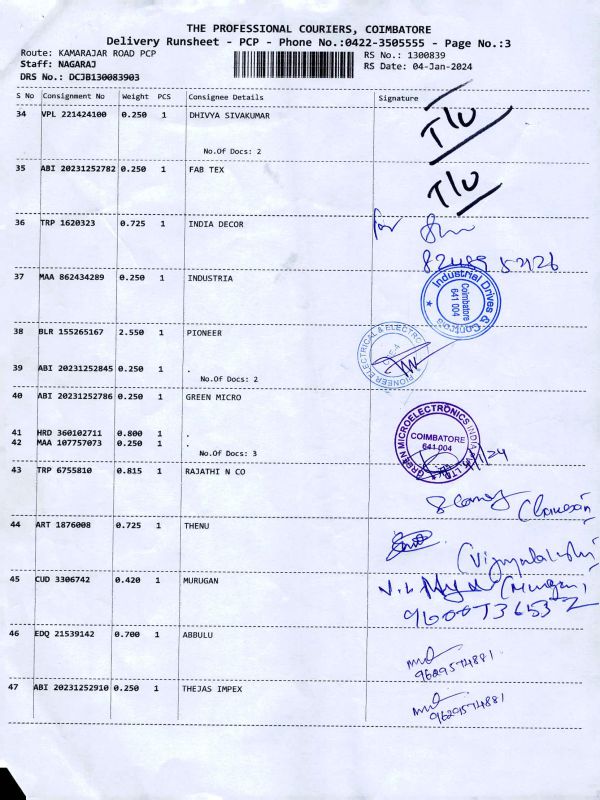 THE PROFESSIONAL COURIERS, COIMBATORE
Delivery Runsheet - PCP - Phone No.:0422-3505555 - Page No.:3
Route: KAMARAJAR ROAD PCP
RS No.: 1300839
Staff: NAGARAJ
RS Date: 04-Jan-2024
DRS No.: DCJB130083903
S No Consignment No Weight PCS Consignee Details Signature
34 VPL 221424100 0.250 1 DHIVYA SIVAKUMAR
No.Of Docs: 2
35 ABI 20231252782 0.250 1 FAB TEX
36 TRP 1620323 0.725 1 INDIA DECOR
for
37 MAA 862434289 0.250 1 INDUSTRIA
Industrial Drives & Controls
Coimbatore
641 004
38 BLR 155265167 2.550 1 PIONEER
PIONEER ELECTRICAL & ELECTRO
39 ABI 20231252845 0.250 1 .
No.Of Docs: 2
40 ABI 20231252786 0.250 1 GREEN MICRO
GREEN MICROELECTRONICS INDIA
COIMBATORE
641 004
41 HRD 360102711 0.800 1 .
42 MAA 107757073 0.250 1 .
No.Of Docs: 3
43 TRP 6755810 0.815 1 RAJATHI N CO
44 ART 1876008 0.725 1 THENU
45 CUD 3306742 0.420 1 MURUGAN
(Murugan)
9600736532
46 EDQ 21539142 0.700 1 ABBULU
9629574881
47 ABI 20231252910 0.250 1 THEJAS IMPEX
9629574881